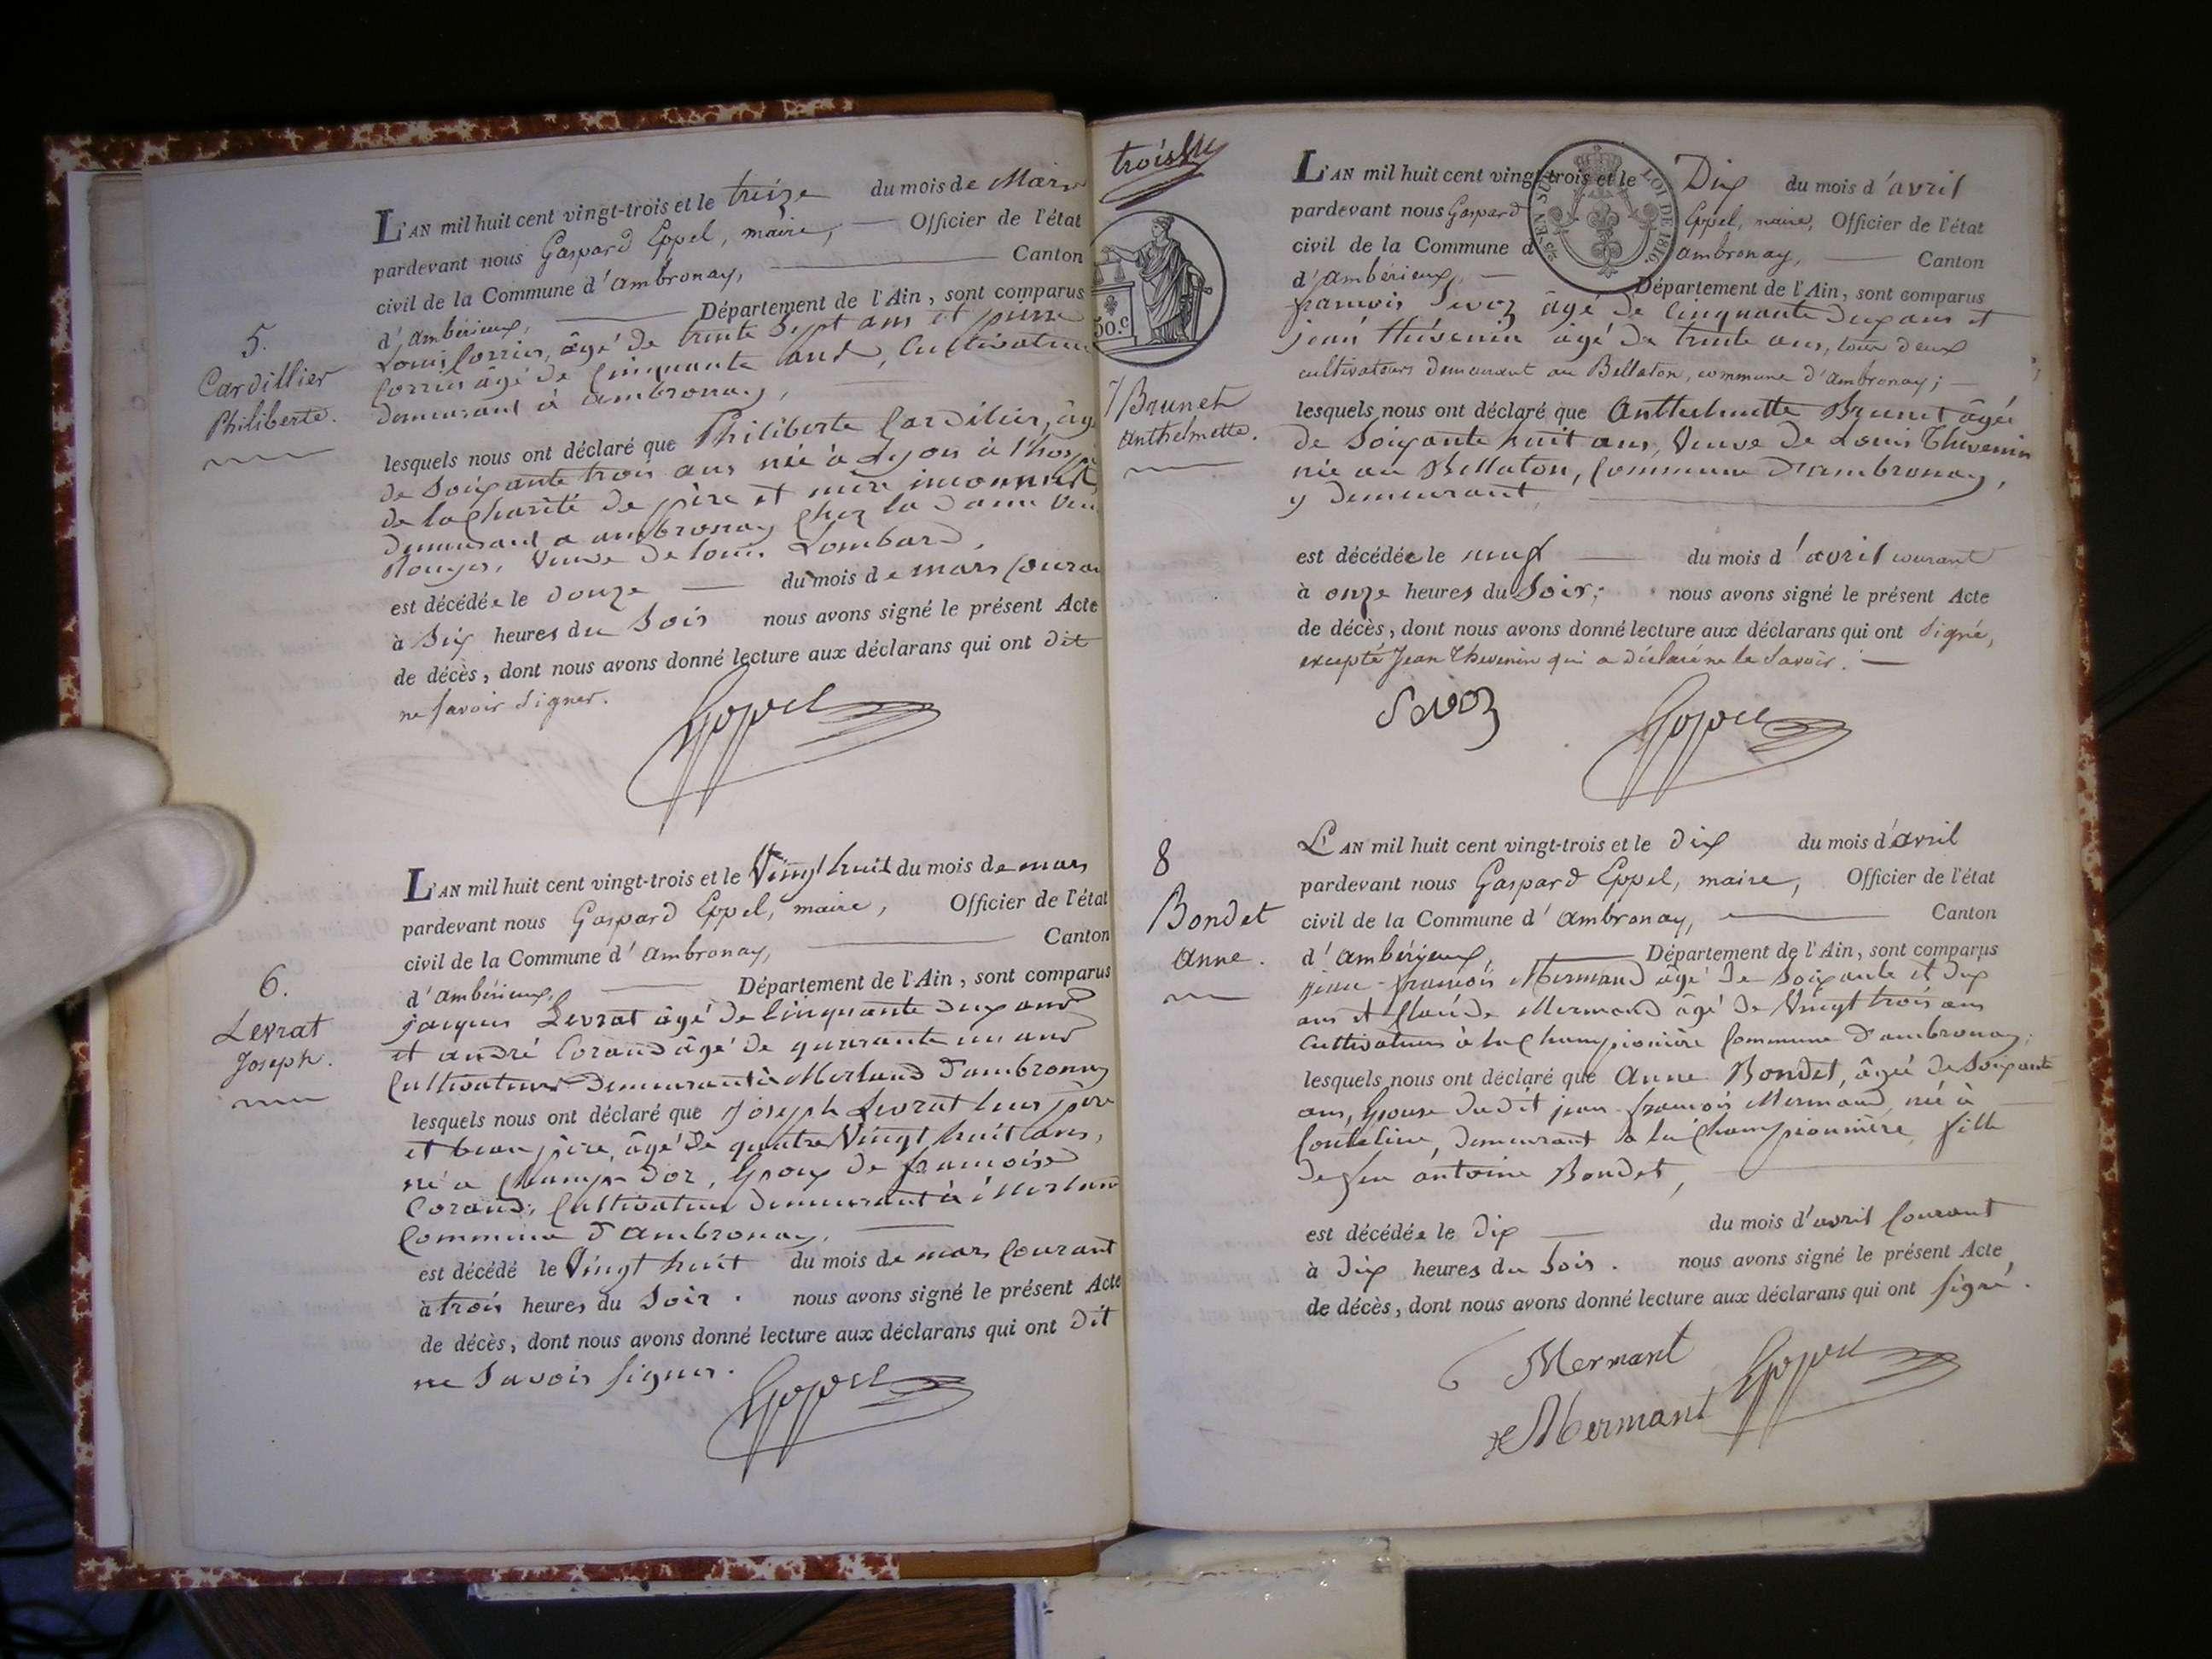 5.
Cardillier
Philiberte.
L'AN mil huit cent vingt-trois et le treize du mois de Mars
pardevant nous Gaspard Eppel, maire, Officier de l'état
civil de la Commune d'ambronay, Canton
d'ambérieux, Département de l'Ain, sont comparus
Louis Corrier, âgé de trente sept ans et pierre
Corrier âgé de Cinquante ans, Cultivateurs
demeurant à ambronay,
lesquels nous ont déclaré que Philiberte Cardilier, âgé
de Soixante trois ans née à Lyon à l'hos
de la charité de père et mère inconnus,
demeurant a ambronay chez la dame Veu
Rouyer, Veuve de louis Lombard,
est décédée le douze du mois de mars Couran
à Six heures du Soir nous avons signé le présent Acte
de décès, dont nous avons donné lecture aux déclarans qui ont dit
ne savoir signer.
Eppel
6.
Levrat
Joseph.
L'AN mil huit cent vingt-trois et le Vingt huit du mois de mars
pardevant nous Gaspard Eppel, maire, Officier de l'état
civil de la Commune d'ambronay, Canton
d'ambérieux, Département de l'Ain, sont comparus
jacques Levrat âgé de Cinquante deux ans
et andré Corand âgé de quarante un ans
Cultivateurs demeurant à Merland d'ambronay
lesquels nous ont déclaré que Joseph Levrat leur père
et beau père, âgé de quatre Vingt huit ans,
né a Champ dor, Epoux de francoise
Corand, Cultivateur demeurant à Merland
Commune d'ambronay,
est décédé le Vingt huit du mois de mars Courant
à trois heures du Soir. nous avons signé le présent Acte
de décès, dont nous avons donné lecture aux déclarans qui ont dit
ne Savoir signer.
Eppel
trois
50.c
LOI DE 1816.
7 Brunet
anthelmette.
L'AN mil huit cent vingt-trois et le Dix du mois d'avril
pardevant nous Gaspard Eppel, maire, Officier de l'état
civil de la Commune d ambronay, Canton
d'ambérieux, Département de l'Ain, sont comparus
francois Savoz âgé de Cinquante deux ans et
jean thévenin âgé de trente ans, tous deux
cultivateurs demeurant au Bellaton, commune d'ambronay;
lesquels nous ont déclaré que Anthelmette Brunet âgée
de Soixante huit ans, Veuve de Louis Thevenin
née au Bellaton, Commune d'ambronay,
y demeurant
est décédée le neuf du mois d'avril courant
à onze heures du Soir; nous avons signé le présent Acte
de décès, dont nous avons donné lecture aux déclarans qui ont signé,
excepté Jean Thevenin qui a déclaré ne le savoir.
Savoz
Eppel
8
Bondet
anne.
L'AN mil huit cent vingt-trois et le dix du mois d'avril
pardevant nous Gaspard Eppel, maire, Officier de l'état
civil de la Commune d'ambronay, Canton
d'ambérieux, Département de l'Ain, sont comparus
jean-francois Mermand âgé de Soixante et dix
ans et Claude Mermand âgé de Vingt trois ans
Cultivateurs à la Championière Commune d'ambronay;
lesquels nous ont déclaré que Anne Bondet, âgée de Soixante
ans, Epouse dudit jean-francois Mermand, née à
Coutelieu, demeurant à la Championnière, fille
de feu antoine Bondet,
est décédée le dix du mois d'avril Courant
à dix heures du Soir. nous avons signé le présent Acte
de décès, dont nous avons donné lecture aux déclarans qui ont signé.
Mermant
Mermant Eppel